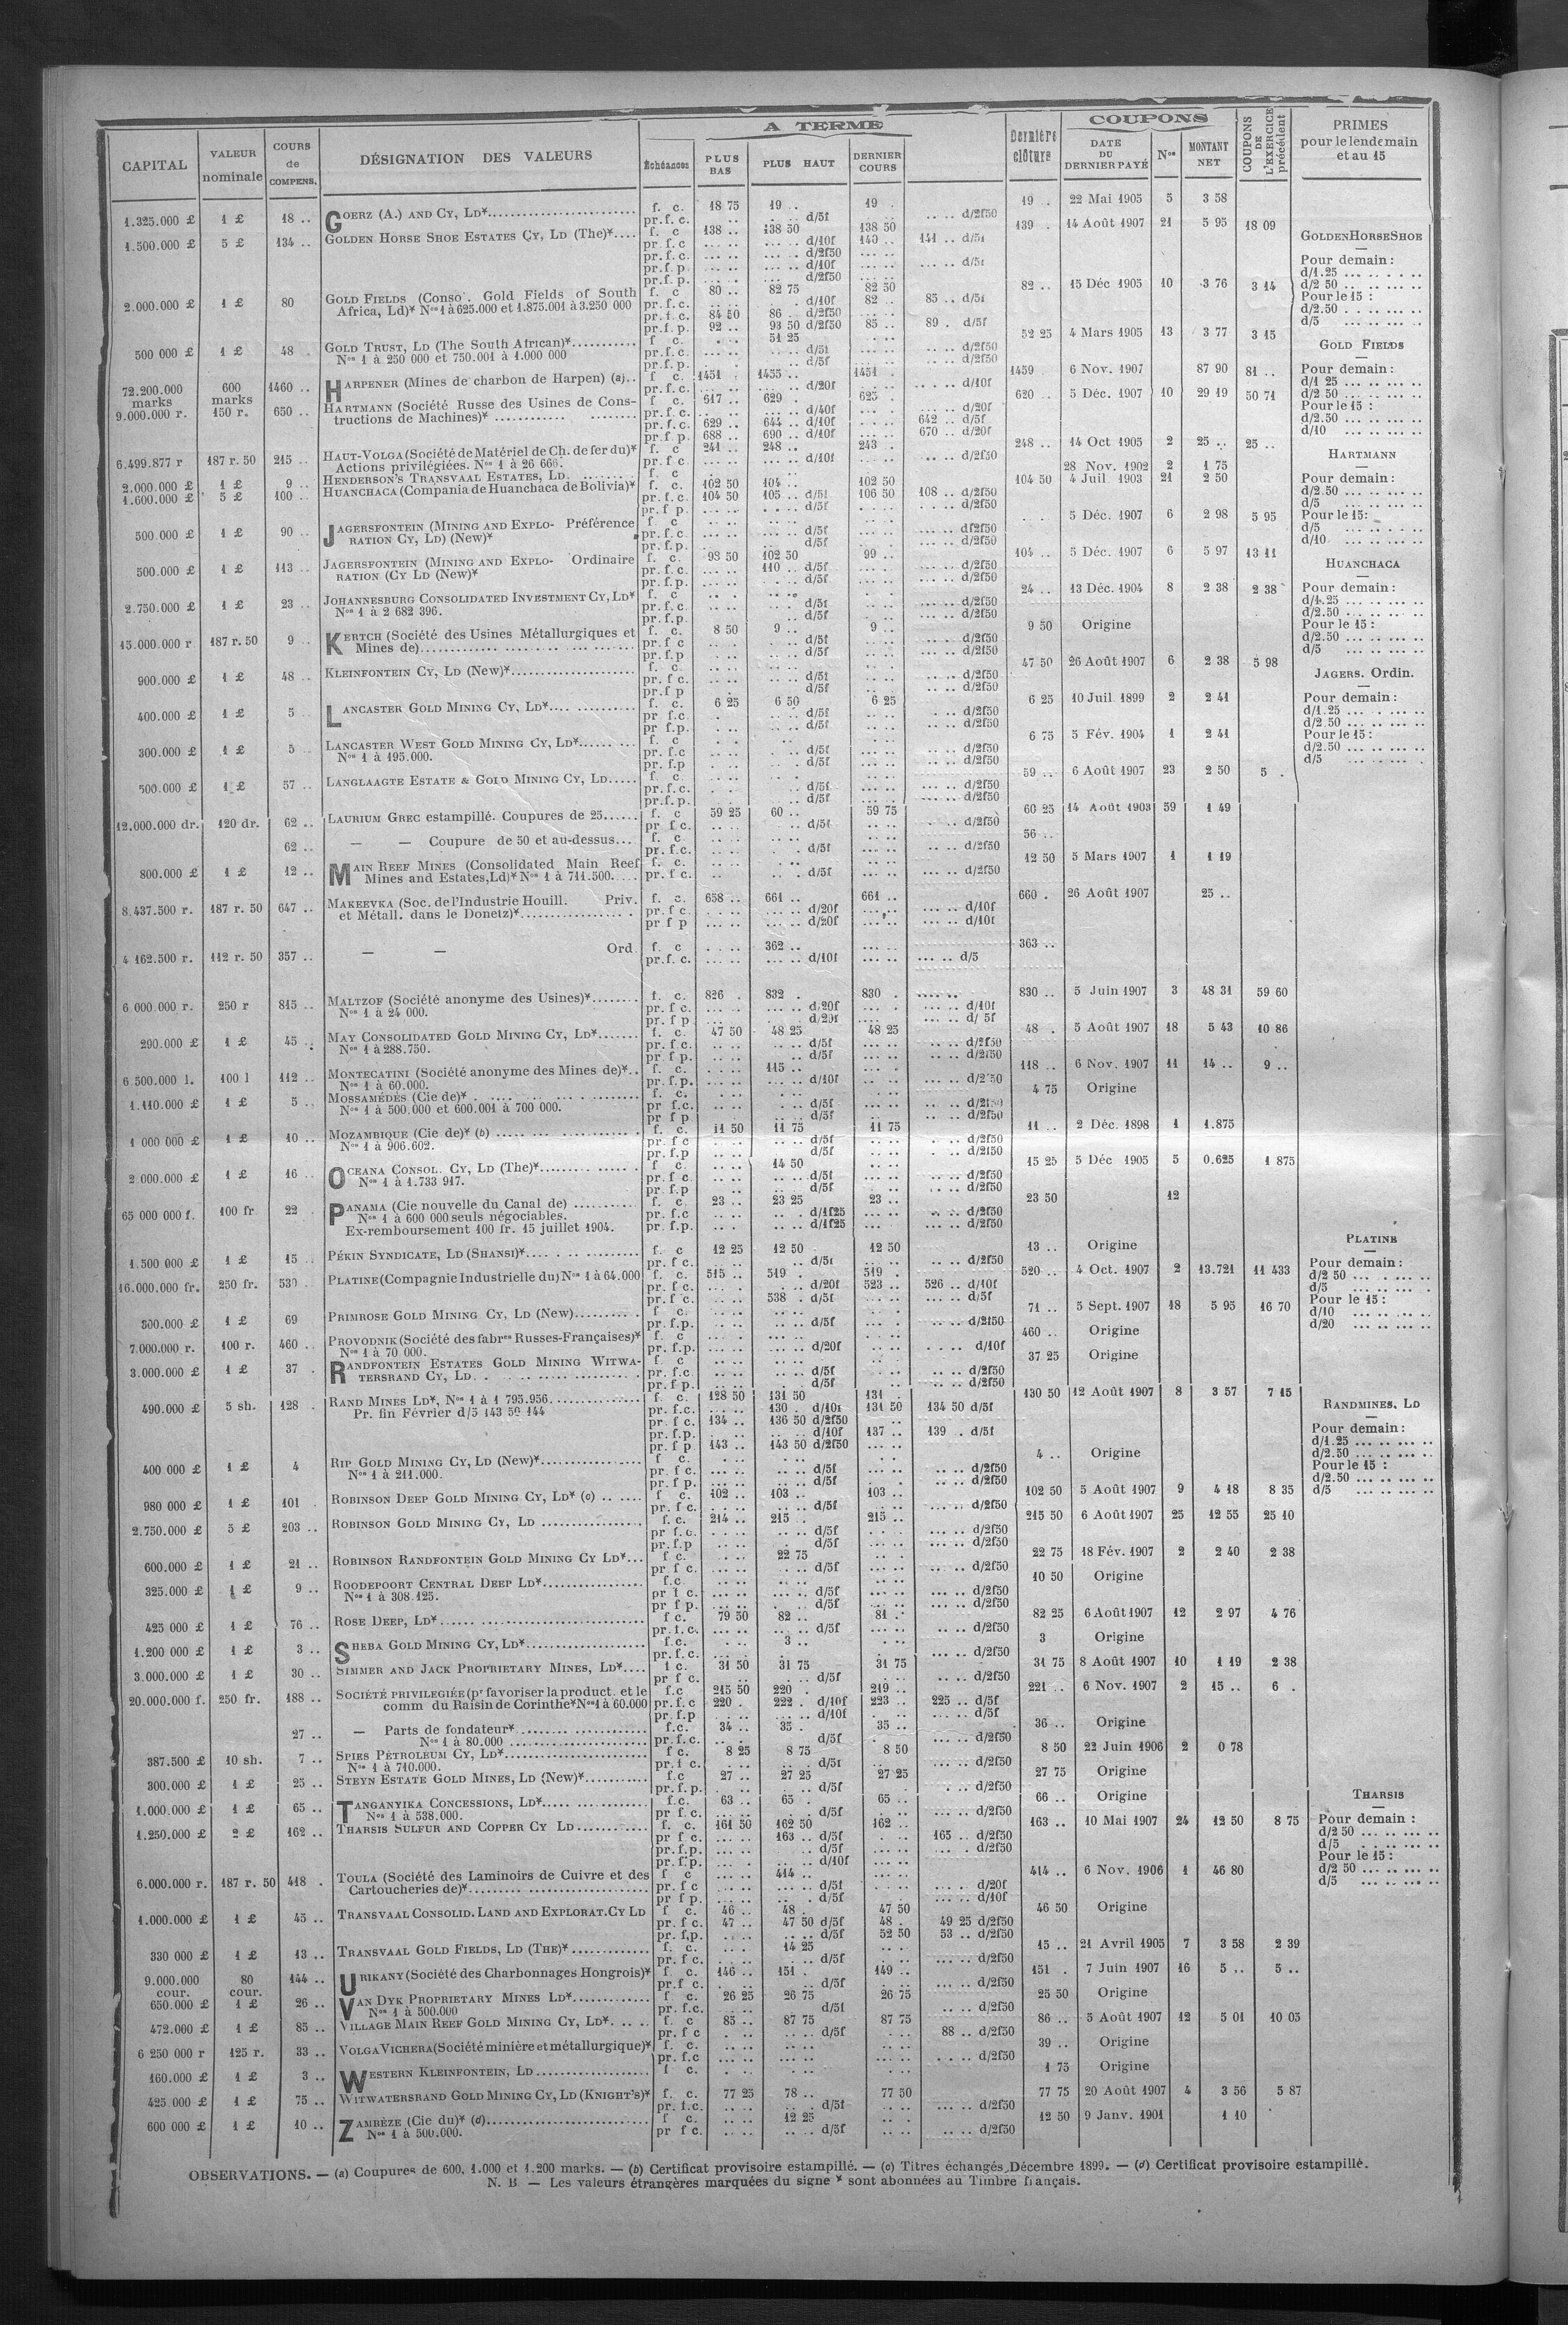 CAPITAL | VALEUR nominale | COURS de COMPENS. | DÉSIGNATION DES VALEURS | Échéances | A TERME | PLUS BAS | PLUS HAUT | DERNIER COURS | Dernière clôture | COUPONS | DATE DU DERNIER PAYÉ | Nos | MONTANT NET | COUPONS DE L'EXERCICE précédent | PRIMES pour le lendemain et au 15
1.325.000 £ 1 £ 18 .. GOERZ (A.) AND CY, LD* f. c. 18 75 19 . 19 . 19 . 22 Mai 1905 5 3 58
pr. f. c. d/5f d/2f50
1.500.000 £ 5 £ 134 .. GOLDEN HORSE SHOE ESTATES CY, LD (The)* f. c 138 .. 138 50 138 50 139 . 14 Août 1907 21 5 95 18 09
pr. f. c d/10f 140 .. 141 .. d/5f
pr. f. c. d/2f50
pr. f. p. d/10f d/5f
pr. f. p. d/2f50
2.000.000 £ 1 £ 80 GOLD FIELDS (Conso. Gold Fields of South f. c 80 .. 82 75 82 50 82 .. 15 Déc 1905 10 3 76 3 14
Africa, Ld)* Nos 1 à 625.000 et 1.875.001 à 3.250 000 pr. f. c. d/10f 82 .. 85 .. d/5f
pr. f. c. 84 50 86 . d/2f50
pr. f. p. 92 .. 93 50 d/2f50 85 .. 89 . d/5f
500 000 £ 1 £ 48 GOLD TRUST, LD (The South African)* f c. 51 25 52 25 4 Mars 1905 13 3 77 3 15
Nos 1 à 250 000 et 750.001 à 1.000 000 pr. f. c. d/5f d/2f50
pr. f. p. d/5f d/2f50
72.200.000 marks 600 marks 1460 .. HARPENER (Mines de charbon de Harpen) (a) f c. 1451 1455 .. 1451 . 1459 6 Nov. 1907 87 90 81 ..
pr. f. c. d/20f d/10f
9.000.000 r. 150 r. 650 .. HARTMANN (Société Russe des Usines de Cons- f c. 617 .. 629 . 625 . 620 .. 5 Déc. 1907 10 29 19 50 71
tructions de Machines)* pr. f. c. d/40f d/20f
pr. f. c. 629 .. 644 .. d/10f 642 .. d/5f
pr. f p. 688 .. 690 .. d/10f 670 .. d/20f
6.499.877 r 187 r. 50 215 .. HAUT-VOLGA (Société de Matériel de Ch. de fer du)* f. c 241 .. 248 .. 243 . 248 .. 14 Oct 1905 2 25 .. 25 ..
Actions privilégiées. Nos 1 à 26 666. pr. f c d/10f d/2f50
2.000.000 £ 1 £ 9 .. HENDERSON'S TRANSVAAL ESTATES, LD. f. c 28 Nov. 1902 2 1 75
1.600.000 £ 5 £ 100 .. HUANCHACA (Compania de Huanchaca de Bolivia)* f. c. 102 50 104 .. 102 50 104 50 4 Juil 1903 21 2 50
pr. f. c. 104 50 105 .. d/5f 106 50 108 .. d/2f50
pr. f p. d/5f d/2f50
500.000 £ 1 £ 90 .. JAGERSFONTEIN (MINING AND EXPLO- Préférence f c 5 Déc. 1907 6 2 98 5 95
RATION CY, LD) (New)* pr. f. c. d/5f d/2f50
pr. f. p. d/5f d/2f50
500.000 £ 1 £ 113 .. JAGERSFONTEIN (MINING AND EXPLO- Ordinaire f. c. 98 50 102 50 99 .. 104 .. 5 Déc. 1907 6 5 97 13 11
RATION (CY LD (New)* pr. f. c. 110 .. d/5f d/2f50
pr. f. p. d/5f d/2f50
2.750.000 £ 1 £ 23 .. JOHANNESBURG CONSOLIDATED INVESTMENT CY, LD* f. c 24 .. 13 Déc. 1904 8 2 38 2 38
Nos 1 à 2 682 396. pr. f. c. d/5f d/2f50
pr. f. p. d/5f d/2f50
15.000.000 r 187 r. 50 9 .. KERTCH (Société des Usines Métallurgiques et f. c. 8 50 9 .. 9 .. 9 50 Origine
Mines de) pr. f c d/5f d/2f50
pr. f. p d/5f d/2f50
900.000 £ 1 £ 48 .. KLEINFONTEIN CY, LD (New)* f. c. 47 50 26 Août 1907 6 2 38 5 98
pr. f c. d/5f d/2f50
pr. f p d/5f d/2f50
400.000 £ 1 £ 5 .. LANCASTER GOLD MINING CY, LD* f. c. 6 25 6 50 6 25 6 25 10 Juil 1899 2 2 41
pr f. c. d/5f d/2f50
pr f. p. d/5f d/2f50
300.000 £ 1 £ 5 . LANCASTER WEST GOLD MINING CY, LD* f. c 6 75 5 Fév. 1904 1 2 41
Nos 1 à 195.000. pr. f. c d/5f d/2f50
pr. f. p d/5f d/2f50
500.000 £ 1 £ 57 .. LANGLAAGTE ESTATE & GOLD MINING CY, LD f. c. 59 .. 6 Août 1907 23 2 50 5 .
pr. f. c. d/5f d/2f50
pr. f. p. d/5f d/2f50
12.000.000 dr. 120 dr. 62 .. LAURIUM GREC estampillé. Coupures de 25 f. c 59 25 60 .. 59 75 60 25 14 Août 1903 59 1 49
pr f c. d/5f d/2f50
62 .. — — Coupure de 50 et au-dessus... f. c 56 ..
pr. f. c. d/5f d/2f50
800.000 £ 1 £ 12 .. MAIN REEF MINES (Consolidated Main Reef f. c. 12 50 5 Mars 1907 1 1 19
Mines and Estates, Ld)* Nos 1 à 711.500. pr. f c. d/5f d/2f50
8.437.500 r. 187 r. 50 647 .. MAKEEVKA (Soc. de l'Industrie Houill. Priv. f. c. 658 .. 661 .. 661 .. 660 . 26 Août 1907 25 ..
et Métall. dans le Donetz)* pr. f c. d/20f d/10f
pr f p d/20f d/10f
4 162.500 r. 112 r. 50 357 .. — — Ord f. c 362 .. 363 ..
pr. f. c. d/10f d/5
6 000.000 r. 250 r 815 .. MALTZOF (Société anonyme des Usines)* f. c. 826 . 832 . 830 . 830 .. 5 Juin 1907 3 48 31 59 60
Nos 1 à 24 000. pr. f c. d/20f d/10f
pr. f p d/20f d/ 5f
290.000 £ 1 £ 45 .. MAY CONSOLIDATED GOLD MINING CY, LD* f. c. 47 50 48 25 48 25 48 . 5 Août 1907 18 5 43 10 86
Nos 1 à 288.750. pr. f. c. d/5f d/2f50
pr. f p. d/5f d/2f50
6 500.000 l. 100 l 112 .. MONTECATINI (Société anonyme des Mines de)* f. c. 115 .. 118 .. 6 Nov. 1907 11 14 .. 9 ..
Nos 1 à 60.000. pr. f. p. d/10f d/2f50
1.110.000 £ 1 £ 5 .. MOSSAMÉDÈS (Cie de)* f. c. 4 75 Origine
Nos 1 à 500.000 et 600.001 à 700 000. pr f. c. d/5f d/2f50
pr f p d/5f d/2f50
1 000 000 £ 1 £ 10 .. MOZAMBIQUE (Cie de)* (b) f. c. 11 50 11 75 11 75 11 .. 2 Déc. 1898 1 1.875
Nos 1 à 906.602. pr. f c d/5f d/2f50
pr. f. p d/5f d/2f50
2 000.000 £ 1 £ 16 .. OCEANA CONSOL. CY, LD (The)* f c. 14 50 15 25 5 Déc 1905 5 0.625 1 875
Nos 1 à 1.733 917. pr. f c d/5f d/2f50
pr. f. p d/5f d/2f50
65 000 000 f. 100 fr 22 . PANAMA (Cie nouvelle du Canal de) f. c. 23 .. 23 25 23 .. 23 50 12
Nos 1 à 600 000 seuls négociables. pr. f. c d/1f25 d/2f50
Ex-remboursement 100 fr. 15 juillet 1904. pr. f. p. d/1f25 d/2f50
1.500 000 £ 1 £ 15 .. PÉKIN SYNDICATE, LD (SHANSI)* f. c 12 25 12 50 12 50 13 .. Origine
pr. f c. d/5f d/2f50
16.000.000 fr. 250 fr. 530 . PLATINE (Compagnie Industrielle du) Nos 1 à 64.000 f. c. 515 .. 519 . 519 . 520 .. 4 Oct. 1907 2 13.721 11 433
pr. f. c. d/20f 523 .. 526 .. d/10f
pr. f c. 538 . d/5f d/5f
300.000 £ 1 £ 69 PRIMROSE GOLD MINING CY, LD (New) f c. 71 .. 5 Sept. 1907 18 5 95 16 70
pr. f. p. d/5f d/2f50
7.000.000 r. 100 r. 460 .. PROVODNIK (Société des fabres Russes-Françaises)* f. c 460 .. Origine
Nos 1 à 70 000. pr. f. p. d/20f d/10f
3.000.000 £ 1 £ 37 . RANDFONTEIN ESTATES GOLD MINING WITWA- f. c 37 25 Origine
TERSRAND CY, LD. pr. f. c d/5f d/2f50
pr. f p. d/5f d/2f50
490.000 £ 5 sh. 128 . RAND MINES LD*, Nos 1 à 1 795.956. f c. 128 50 131 50 131 . 130 50 12 Août 1907 8 3 57 7 15
Pr. fin Février d/5 143 50 144 pr. f. c. 130 . d/10f 131 50 134 50 d/5f
pr. f c. 134 .. 136 50 d/2f50
pr. f. p. d/10f 137 .. 139 . d/5f
pr. f p 143 .. 143 50 d/2f50
400 000 £ 1 £ 4 RIP GOLD MINING CY, LD (New)* f c. 4 .. Origine
Nos 1 à 211.000. pr. f c. d/5f d/2f50
pr. f p. d/5f d/2f50
980 000 £ 1 £ 101 . ROBINSON DEEP GOLD MINING CY, LD* (c) f c. 102 .. 103 .. 103 .. 102 50 5 Août 1907 9 4 18 8 35
pr. f c. d/5f d/2f50
2.750.000 £ 5 £ 203 .. ROBINSON GOLD MINING CY, LD f. c. 214 .. 215 . 215 .. 215 50 6 Août 1907 25 12 55 25 10
pr f. c. d/5f d/2f50
pr. f. p d/5f d/2f50
600.000 £ 1 £ 21 .. ROBINSON RANDFONTEIN GOLD MINING CY LD* f c. 22 75 22 75 18 Fév. 1907 2 2 40 2 38
pr. f c. d/5f d/2f50
325.000 £ 1 £ 9 .. ROODEPOORT CENTRAL DEEP LD* f. c 10 50 Origine
Nos 1 à 308.125. pr f c. d/5f d/2f50
pr f p. d/5f d/2f50
425 000 £ 1 £ 76 .. ROSE DEEP, LD* f c. 79 50 82 .. 81 .. 82 25 6 Août 1907 12 2 97 4 76
pr. f. c. d/5f d/2f50
1.200 000 £ 1 £ 3 .. SHEBA GOLD MINING CY, LD* f. c. 3 .. 3 Origine
pr. f. c. d/2f50
3.000.000 £ 1 £ 30 .. SIMMER AND JACK PROPRIETARY MINES, LD* f c. 31 50 31 75 31 75 31 75 8 Août 1907 10 1 19 2 38
pr f c. d/5f d/2f50
20.000.000 f. 250 fr. 188 .. SOCIÉTÉ PRIVILEGIÉE (pr favoriser la product. et le f. c 215 50 220 . 219 .. 221 .. 6 Nov. 1907 2 15 .. 6 .
comm du Raisin de Corinthe* Nos 1 à 60.000 pr. f. c 220 . 222 . d/10f 223 .. 225 .. d/5f
pr. f. p d/10f d/5f
27 .. — Parts de fondateur* f. c. 34 .. 35 . 35 .. 36 .. Origine
Nos 1 à 80.000 pr. f. c. d/5f d/2f50
387.500 £ 10 sh. 7 .. SPIES PÉTROLEUM CY, LD* f c. 8 25 8 75 8 50 8 50 22 Juin 1906 2 0 78
Nos 1 à 710.000. pr. f c. d/5f d/2f50
300.000 £ 1 £ 25 .. STEYN ESTATE GOLD MINES, LD (New)* f. c 27 .. 27 25 27 25 27 75 Origine
pr. f. p. d/5f d/2f50
1.000.000 £ 1 £ 65 .. TANGANYIKA CONCESSIONS, LD* f. c. 63 .. 65 . 65 .. 66 .. Origine
Nos 1 à 538.000. pr f. c. d/5f d/2f50
1.250.000 £ 2 £ 162 .. THARSIS SULFUR AND COPPER CY LD f. c. 161 50 162 50 162 .. 163 .. 10 Mai 1907 24 12 50 8 75
pr f c. 163 .. d/5f 165 .. d/2f50
pr. f. p. d/5f d/2f50
pr. f. p. d/10f
6.000.000 r. 187 r. 50 418 . TOULA (Société des Laminoirs de Cuivre et des f c 414 .. 414 .. 6 Nov. 1906 1 46 80
Cartoucheries de)* pr. f c d/5f d/20f
pr f p. d/5f d/10f
1.000.000 £ 1 £ 45 .. TRANSVAAL CONSOLID. LAND AND EXPLORAT. CY LD f c. 46 .. 48 . 47 50 46 50 Origine
pr. f c. 47 .. 47 50 d/5f 48 . 49 25 d/2f50
pr. f. p. d/5f 52 50 53 .. d/2f50
330 000 £ 1 £ 13 .. TRANSVAAL GOLD FIELDS, LD (THE)* f. c. 14 25 15 .. 21 Avril 1905 7 3 58 2 39
pr. f c. d/5f d/2f50
9.000.000 cour. 80 cour. 144 .. URIKANY (Société des Charbonnages Hongrois)* f c. 146 .. 151 . 149 .. 151 . 7 Juin 1907 16 5 .. 5 ..
pr. f c. d/5f d/2f50
650.000 £ 1 £ 26 .. VAN DYK PROPRIETARY MINES LD* f c. 26 25 26 75 26 75 25 50 Origine
Nos 1 à 500.000 pr. f. c. d/5f d/2f50
472.000 £ 1 £ 85 .. VILLAGE MAIN REEF GOLD MINING CY, LD* f. c 85 .. 87 75 87 75 86 .. 5 Août 1907 12 5 01 10 05
pr. f c d/5f 88 .. d/2f50
6 250 000 r 125 r. 33 .. VOLGA VICHERA (Société minière et métallurgique)* f. c. 39 .. Origine
pr. f. c d/2f50
160.000 £ 1 £ 3 .. WESTERN KLEINFONTEIN, LD f c. 1 75 Origine
425 000 £ 1 £ 75 .. WITWATERSRAND GOLD MINING CY, LD (KNIGHT'S)* f. c. 77 25 78 .. 77 50 77 75 20 Août 1907 4 3 56 5 87
pr. f. c. d/5f d/2f50
600 000 £ 1 £ 10 .. ZAMBÈZE (Cie du)* (d) f c. 12 25 12 50 9 Janv. 1901 1 10
Nos 1 à 500.000. pr f c. d/5f d/2f50
GOLDEN HORSE SHOE
Pour demain :
d/1.25
d/2 50
Pour le 15 :
d/2.50
d/5
GOLD FIELDS
Pour demain :
d/1 25
d/2 50
Pour le 15 :
d/2.50
d/10
HARTMANN
Pour demain :
d/2.50
d/5
Pour le 15 :
d/5
d/10
HUANCHACA
Pour demain :
d/1.25
d/2.50
Pour le 15 :
d/2.50
d/5
JAGERS. Ordin.
Pour demain :
d/1.25
d/2.50
Pour le 15 :
d/2.50
d/5
PLATINE
Pour demain :
d/2 50
d/5
Pour le 15 :
d/10
d/20
RANDMINES, LD
Pour demain :
d/1.25
d/2.50
Pour le 15 :
d/2.50
d/5
THARSIS
Pour demain :
d/2 50
d/5
Pour le 15 :
d/2 50
d/5
OBSERVATIONS. — (a) Coupures de 600, 1.000 et 1.200 marks. — (b) Certificat provisoire estampillé. — (c) Titres échangés Décembre 1899. — (d) Certificat provisoire estampillé.
N. B — Les valeurs étrangères marquées du signe * sont abonnées au Timbre français.